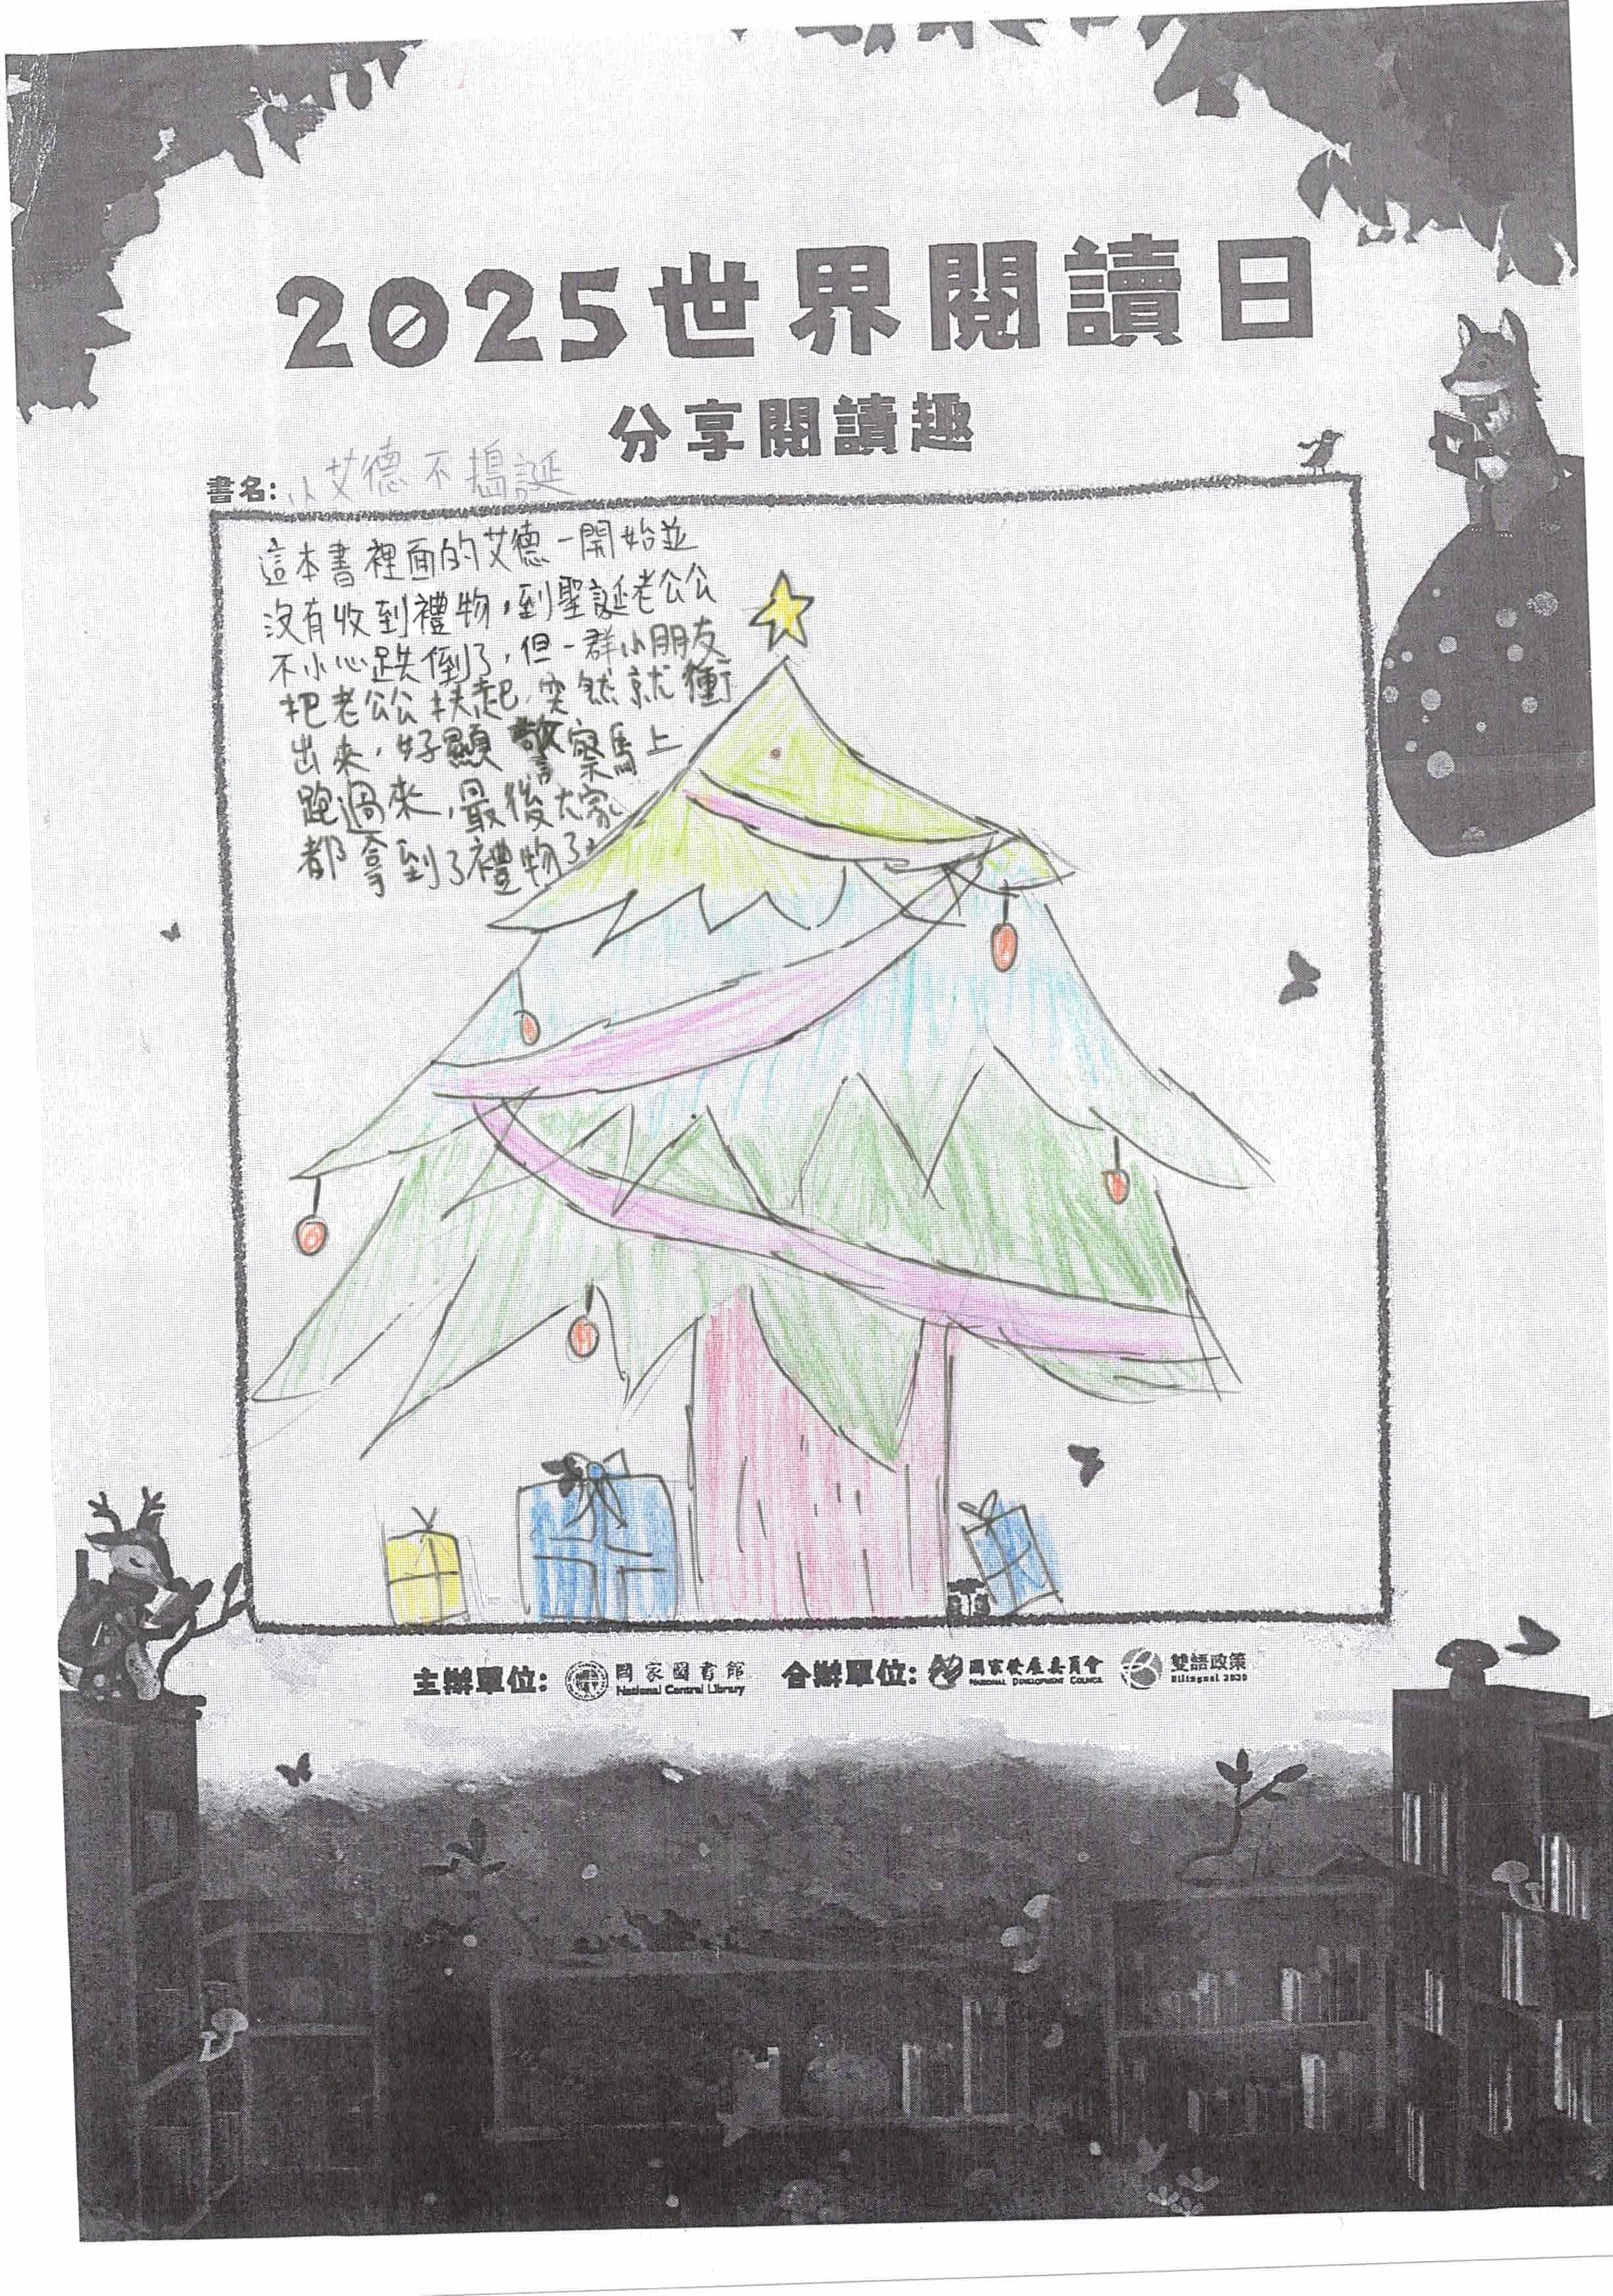 2025世界閱讀日
分享閱讀趣
書名: 小艾德不搗誕
這本書裡面的艾德一開始並
沒有收到禮物,到聖誕老公公
不小心跌倒了,但一群小朋友
把老公公扶起,突然就衝
出來,好顯警察馬上
跑過來,最後大家
都拿到了禮物了。
主辦單位: 國家圖書館 合辦單位: 國家發展委員會 雙語政策
National Central Library NATIONAL DEVELOPMENT COUNCIL Bilingual 2030